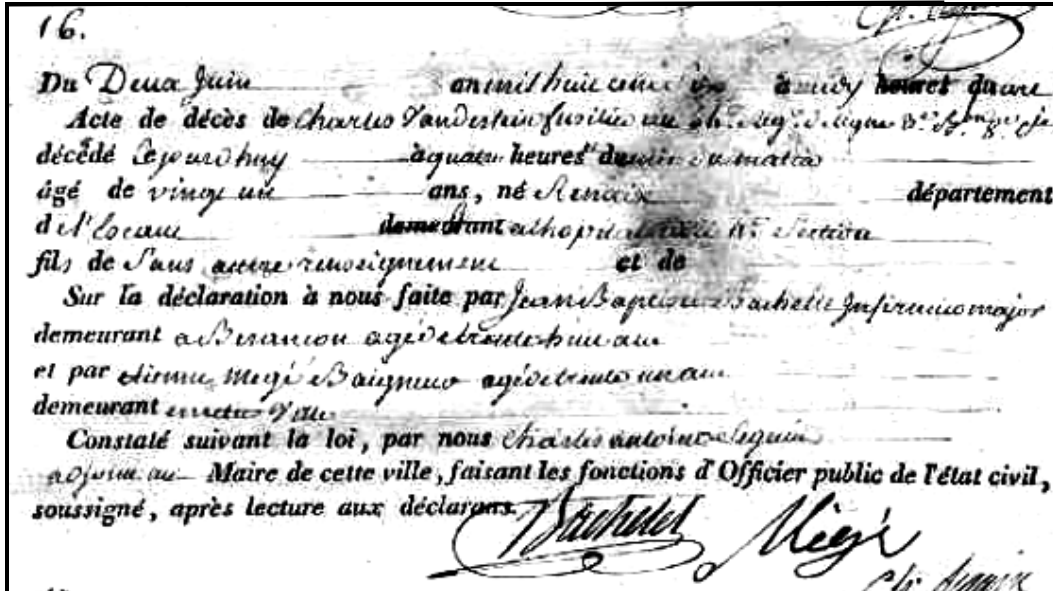 16.
Du Deux Juin an mil huit cent à midy heures quart
Acte de décès de Charles Vandestein fusilier au Regt de ligne
décédé Cejourdhuy à quatre heures du matin
âgé de vingt un ans, né Renaix département
de l'Escaut demeurant a lhopital Section
fils de Sans autre renseignement et de
Sur la déclaration à nous faite par Jean Baptiste Bachelet Infirmier major
demeurant a Besancon agé de trente huit ans
et par etienne Megé Baigneur agé de trente un ans
demeurant en cette Ville
Constaté suivant la loi, par nous Charles antoine Seguin
adjoint au Maire de cette ville, faisant les fonctions d'Officier public de l'état civil,
soussigné, après lecture aux déclarans.
Bachelet Megé
Ch. Seguin